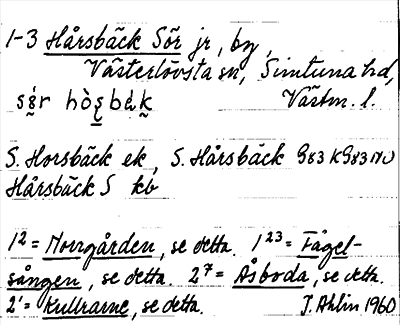 1-3 Hårsbäck Sör jr, by,
Västerlövsta sn, Simtuna hd,
Västm. l.
S. Horsbäck ek, S. Hårsbäck G83 KG83 NV
Hårsbäck S kb
1² = Norrgården, se detta. 1²³ = Fågel-
sången, se detta. 2⁷ = Åsboda, se detta.
2¹ = Kullrarne, se detta. J. Ahlin 1960